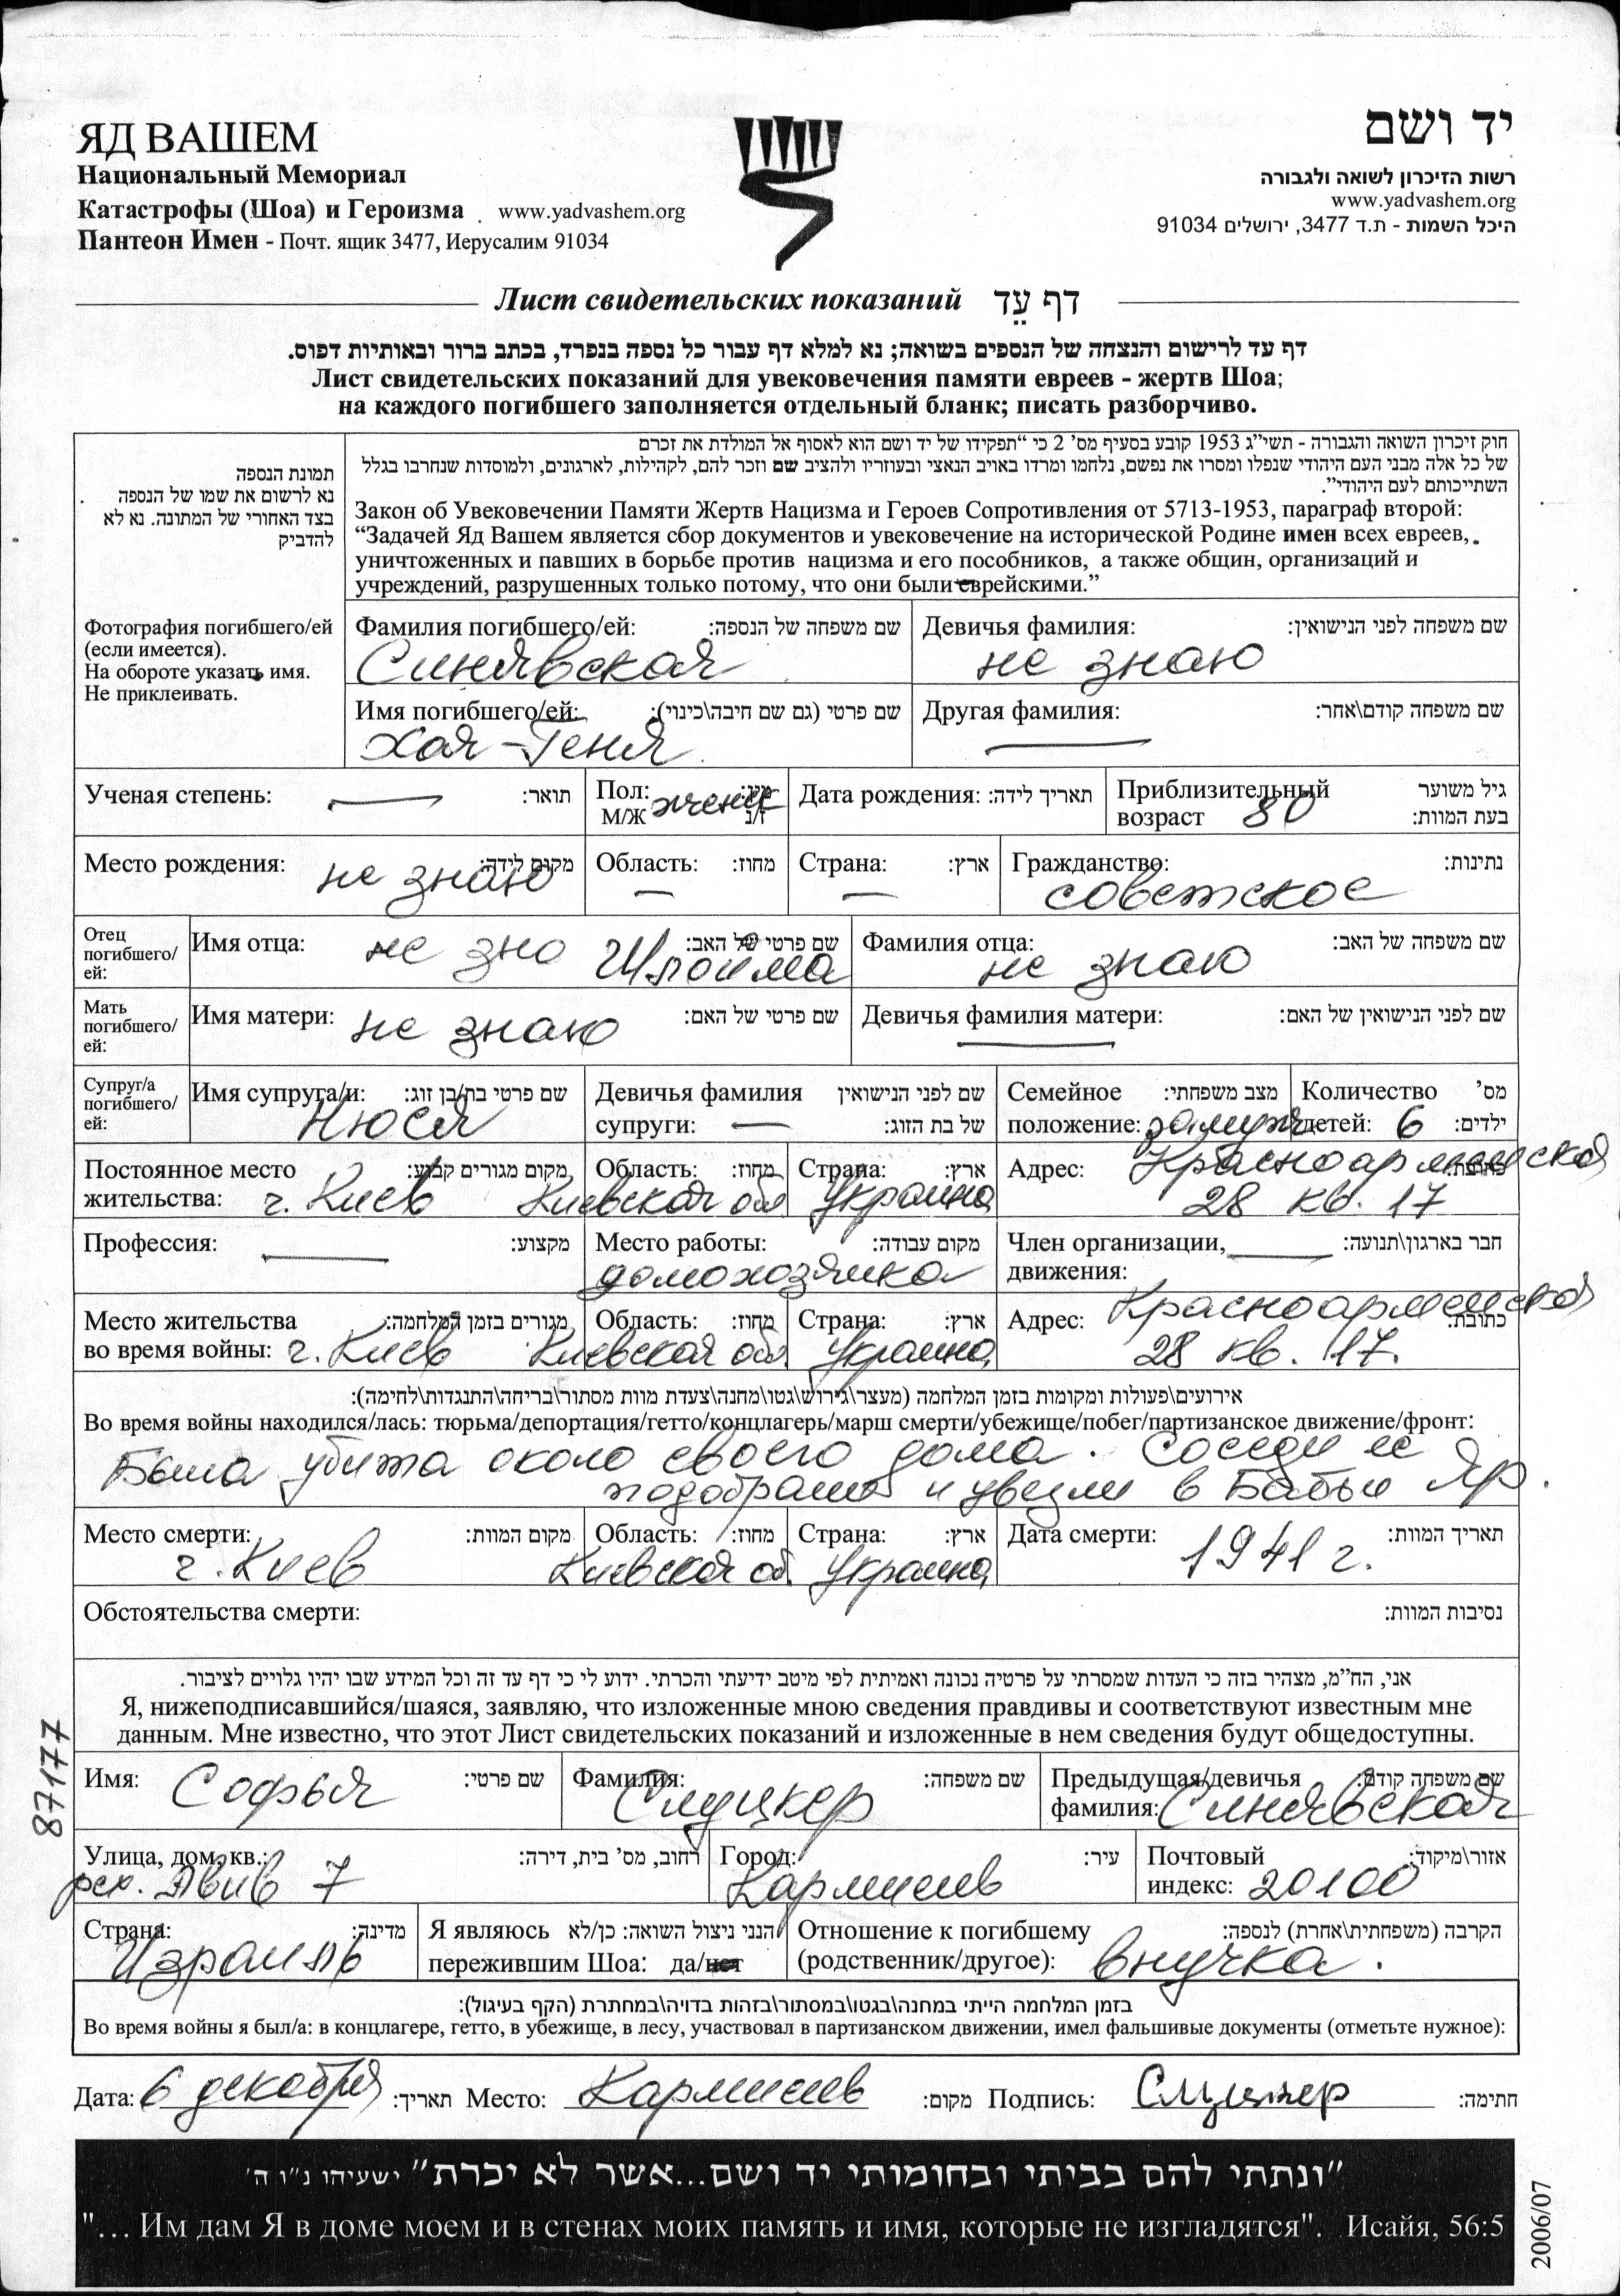 ЯД ВАШЕМ
Национальный Мемориал
Катастрофы (Шоа) и Героизма www.yadvashem.org
Пантеон Имен - Почт. ящик 3477, Иерусалим 91034
יד ושם
רשות הזיכרון לשואה ולגבורה
www.yadvashem.org
היכל השמות - ת.ד 3477, ירושלים 91034
Лист свидетельских показаний דף עֵד
דף עד לרישום והנצחה של הנספים בשואה; נא למלא דף עבור כל נספה בנפרד, בכתב ברור ובאותיות דפוס.
Лист свидетельских показаний для увековечения памяти евреев - жертв Шоа;
на каждого погибшего заполняется отдельный бланк; писать разборчиво.
תמונת הנספה
נא לרשום את שמו של הנספה
בצד האחורי של התמונה. נא לא
להדביק
חוק זיכרון השואה והגבורה - תשי"ג 1953 קובע בסעיף מס' 2 כי "תפקידו של יד ושם הוא לאסוף אל המולדת את זכרם
של כל אלה מבני העם היהודי שנפלו ומסרו את נפשם, נלחמו ומרדו באויב הנאצי ובעוזריו ולהציב שם וזכר להם, לקהילות, לארגונים, ולמוסדות שנחרבו בגלל
השתייכותם לעם היהודי".
Закон об Увековечении Памяти Жертв Нацизма и Героев Сопротивления от 5713-1953, параграф второй:
"Задачей Яд Вашем является сбор документов и увековечение на исторической Родине имен всех евреев,
уничтоженных и павших в борьбе против нацизма и его пособников, а также общин, организаций и
учреждений, разрушенных только потому, что они были еврейскими."
Фотография погибшего/ей
(если имеется).
На обороте указать имя.
Не приклеивать.
Фамилия погибшего/ей: שם משפחה של הנספה:
Синявская
Девичья фамилия: שם משפחה לפני הנישואין:
не знаю
Имя погибшего/ей: שם פרטי (גם שם חיבה\כינוי):
Хая-Геня
Другая фамилия: שם משפחה קודם\אחר:
Ученая степень: — תואר:
Пол: жен מין:
М/Ж ז/נ
Дата рождения: תאריך לידה:
Приблизительный גיל משוער
возраст 80 בעת המוות:
Место рождения: не знаю מקום לידה:
Область: — מחוז:
Страна: — ארץ:
Гражданство: נתינות:
советское
Отец
погибшего/
ей:
Имя отца: не зна Шлойма שם פרטי של האב:
Фамилия отца: שם משפחה של האב:
не знаю
Мать
погибшего/
ей:
Имя матери: не знаю שם פרטי של האם:
Девичья фамилия матери: — שם לפני הנישואין של האם:
Супруг/а
погибшего/
ей:
Имя супруга/и: שם פרטי בת/בן זוג:
Нюся
Девичья фамилия שם לפני הנישואין
супруги: — של בת הזוג:
Семейное מצב משפחתי:
положение: замужем
Количество מס'
детей: 6 ילדים:
Постоянное место מקום מגורים קבוע:
жительства: г. Киев
Область: מחוז:
Киевская обл
Страна: ארץ:
Украина
Адрес: Красноармейская כתובת:
28 кв. 17
Профессия: — מקצוע:
Место работы: מקום עבודה:
домохозяйка
Член организации, — חבר בארגון\תנועה:
движения:
Место жительства מגורים בזמן המלחמה:
во время войны: г. Киев
Область: מחוז:
Киевская обл
Страна: ארץ:
Украина
Адрес: Красноармейская כתובת:
28 кв. 17.
אירועים\פעולות ומקומות בזמן המלחמה (מעצר\גירוש\גטו\מחנה\צעדת מוות מסתור\בריחה\התנגדות\לחימה):
Во время войны находился/лась: тюрьма/депортация/гетто/концлагерь/марш смерти/убежище/побег/партизанское движение/фронт:
Была убита около своего дома. Соседи ее
подобрали и увезли в Бабын Яр.
Место смерти: מקום המוות:
г. Киев
Область: מחוז:
Киевская об.
Страна: ארץ:
Украина
Дата смерти: 1941 г. תאריך המוות:
Обстоятельства смерти: נסיבות המוות:
אני, הח"מ, מצהיר בזה כי העדות שמסרתי על פרטיה נכונה ואמיתית לפי מיטב ידיעתי והכרתי. ידוע לי כי דף עד זה וכל המידע שבו יהיו גלויים לציבור.
Я, нижеподписавшийся/шаяся, заявляю, что изложенные мною сведения правдивы и соответствуют известным мне
данным. Мне известно, что этот Лист свидетельских показаний и изложенные в нем сведения будут общедоступны.
87177
Имя: Софья שם פרטי:
Фамилия: שם משפחה:
Слуцкер
Предыдущая/девичья שם משפחה קודם:
фамилия: Синявская
Улица, дом, кв.: רחוב, מס' בית, דירה:
рех. Авив 7
Город: עיר:
Кармиель
Почтовый אזור\מיקוד:
индекс: 20100
Страна: מדינה:
Израиль
Я являюсь הנני ניצול השואה: כן/לא
пережившим Шоа: да/нет
Отношение к погибшему הקרבה (משפחתית\אחרת) לנספה:
(родственник/другое): внучка.
בזמן המלחמה הייתי במחנה\בגטו\במסתור\בזהות בדויה\במחתרת (הקף בעיגול):
Во время войны я был/а: в концлагере, гетто, в убежище, в лесу, участвовал в партизанском движении, имел фальшивые документы (отметьте нужное):
Дата: 6 декабря תאריך: Место: Кармиель מקום: Подпись: Слуцкер חתימה:
"ונתתי להם בביתי ובחומותי יד ושם...אשר לא יכרת" ישעיהו נ"ו ה'
"... Им дам Я в доме моем и в стенах моих память и имя, которые не изгладятся". Исайя, 56:5
2006/07